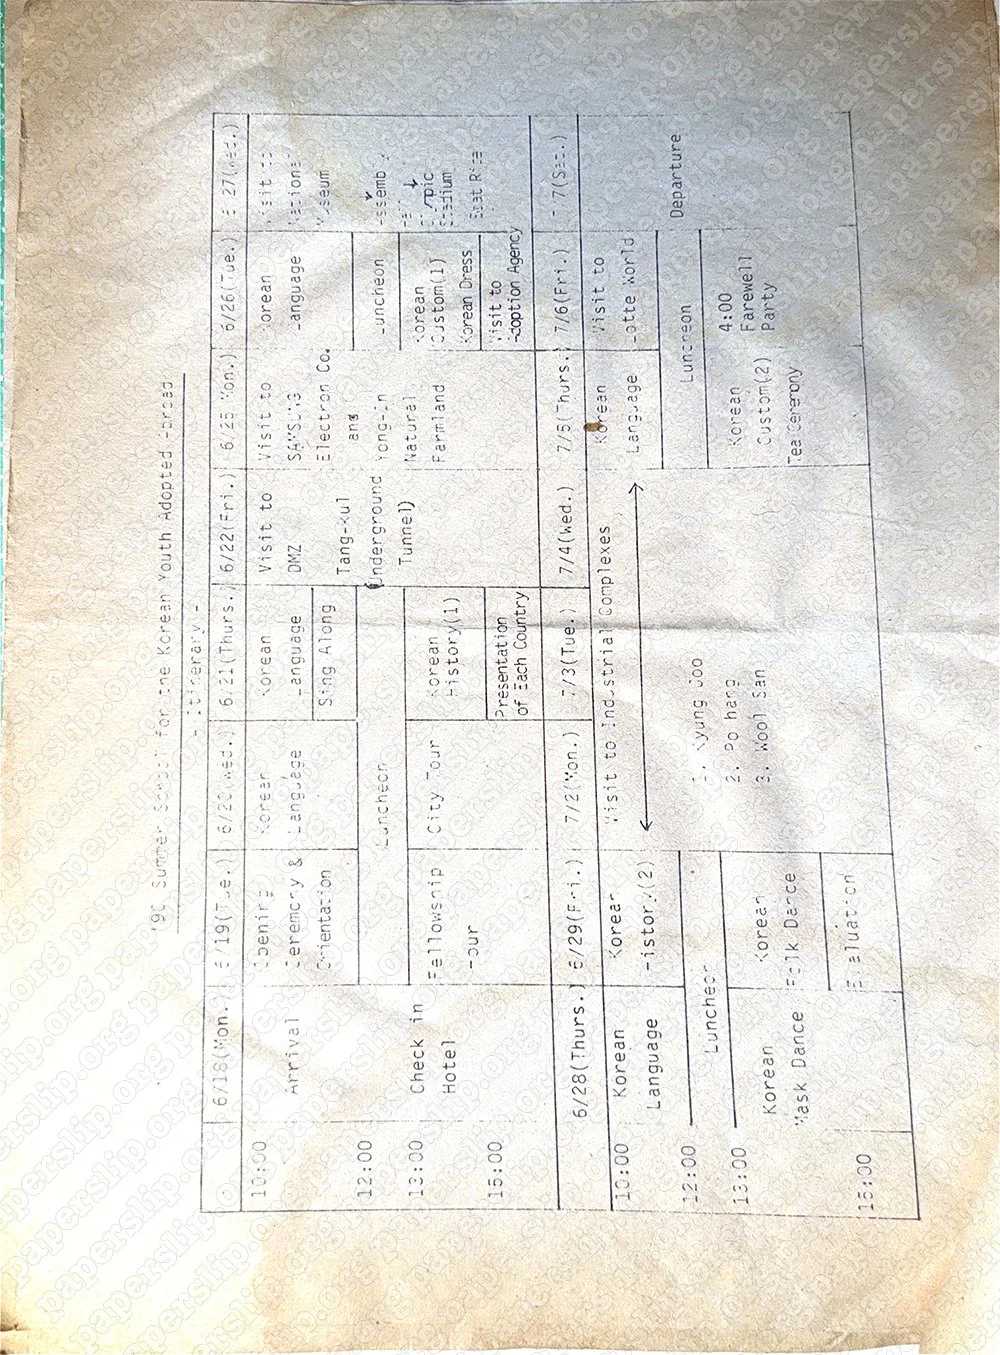 '90 Summer School for the Korean Youth Adopted Abroad
- Itinerary -
6/18(Mon.) 6/19(Tue.) 6/20(Wed.) 6/21(Thurs.) 6/22(Fri.) 6/25(Mon.) 6/26(Tue.) 6/27(Wed.)
10:00
Arrival
Opening
Ceremony &
Orientation
Korean
Language
Korean
Language
Sing Along
Visit to
DMZ
Tang-kul
(Underground
Tunnel)
Visit to
SAMSUNG
Electron Co.
and
Yong-in
Natural
Farmland
Korean
Language
Visit to
National
Museum
12:00
Luncheon
Luncheon
Assembly
13:00
Check in
Hotel
Fellowship
Tour
City Tour
Korean
History(1)
Korean
Custom(1)
Korean Dress
Stadium
Boat Ride
15:00
Presentation
of Each Country
Visit to
Adoption Agency
6/28(Thurs.) 6/29(Fri.) 7/2(Mon.) 7/3(Tue.) 7/4(Wed.) 7/5(Thurs.) 7/6(Fri.) 7/7(Sat.)
10:00
Korean
Language
Korean
History(2)
Visit to Industrial Complexes
1. Kyung Joo
2. Po hang
3. Wool San
Korean
Language
Visit to
Lotte World
Departure
12:00
Luncheon
Luncheon
13:00
Korean
Mask Dance
Korean
Folk Dance
Korean
Custom(2)
Tea Ceremony
4:00
Farewell
Party
15:00
Evaluation
paperslip.org